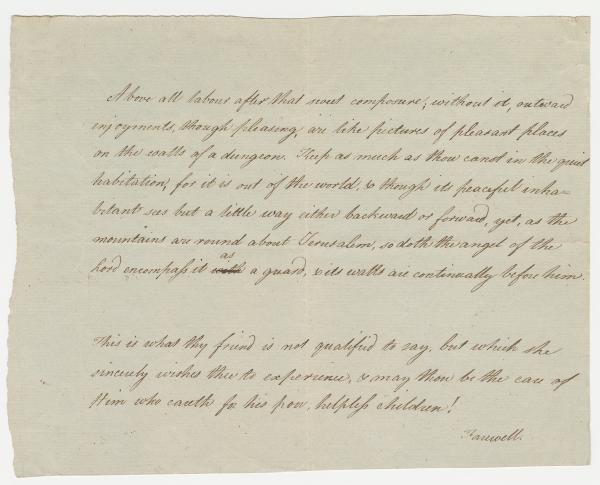 Above all labour after that sweet composure; without it, outward
injoyments, though pleasing, are like pictures of pleasant places
on the walls of a dungeon. Keep as much as thou canst in the quiet
habitation, for it is out of the world, & though its peaceful inha-
bitant sees but a little way either backward or forward, yet, as the
mountains are round about Jerusalem, so doth the angel of the
as
Lord encompass it with a guard, & its walls are continually before him.
This is what thy friend is not qualified to say, but which she
sincerely wishes thee to experience, & may thou be the care of
Him who careth for his poor, helpless children!
Farewell.